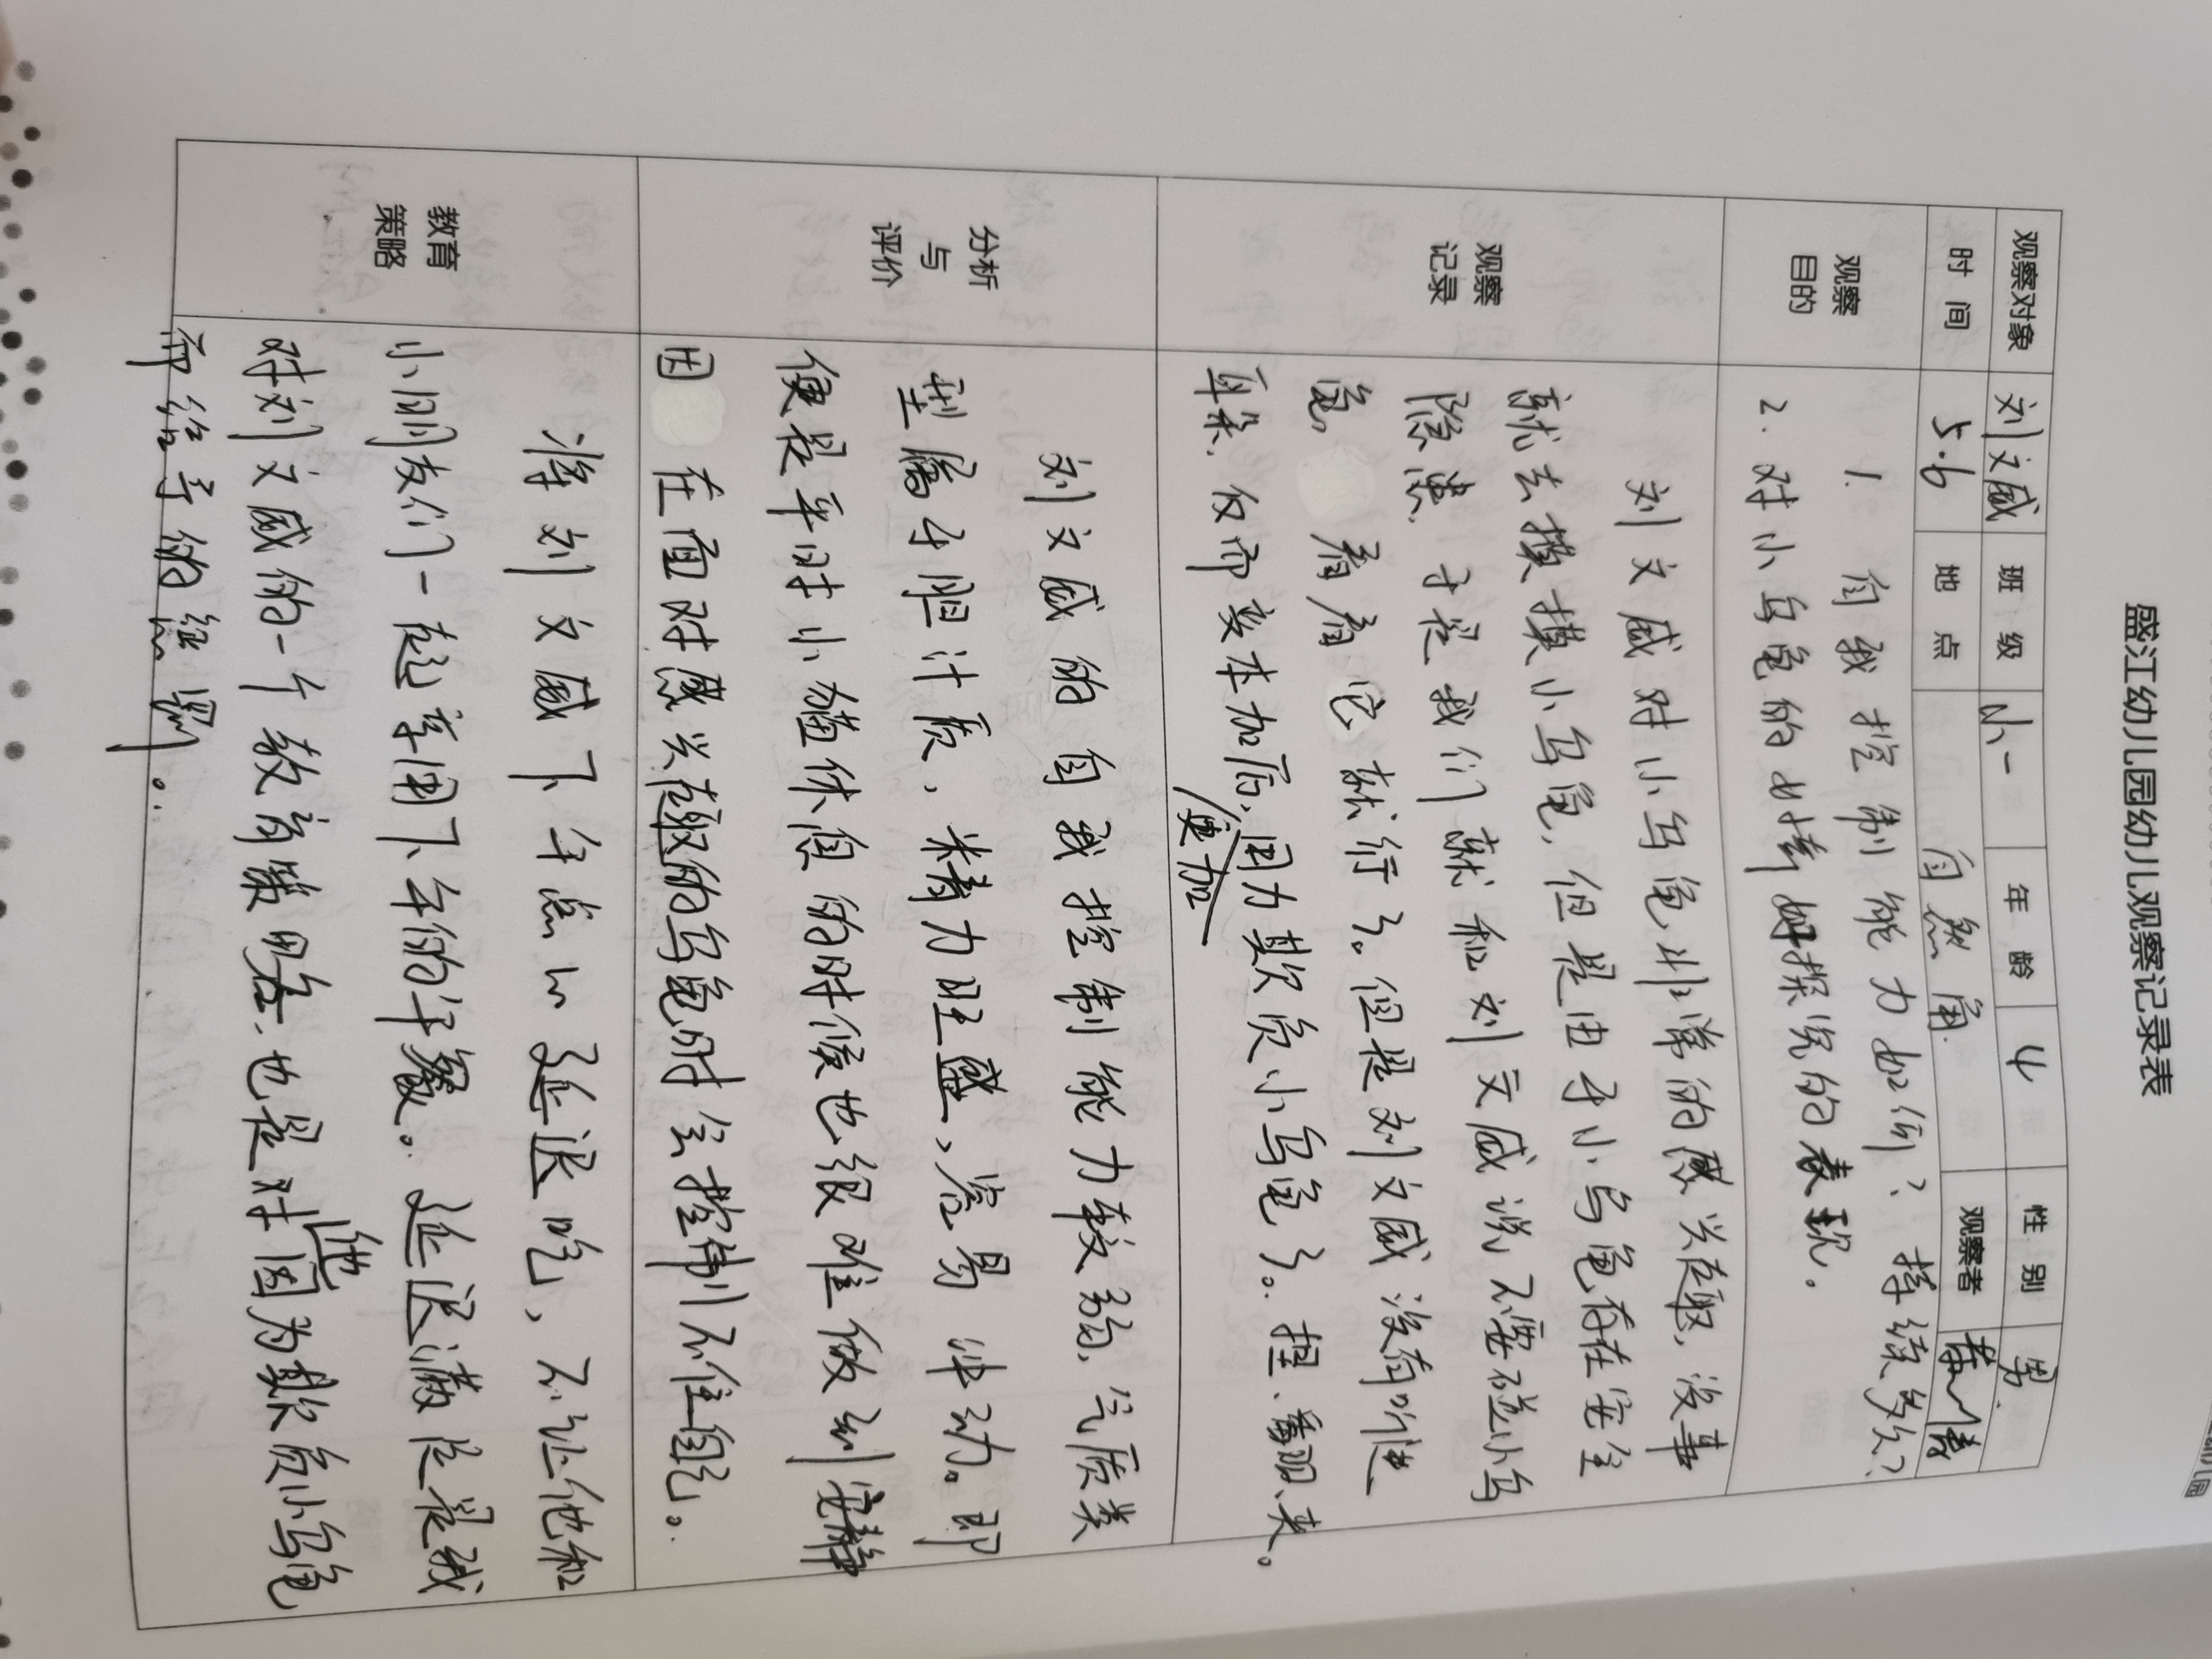 幼儿园
盛江幼儿园幼儿观察记录表
观察对象 刘文威 班级 小一 年龄 4 性别 男.
时间 5.6 地点 自然角. 观察者
观察目的
1. 自我控制能力如何？持续多久？
2. 对小乌龟的好奇 探究的表现。
观察记录
刘文威对小乌龟非常的感兴趣，没事
就去摸摸小乌龟，但是由于小乌龟存在安全
隐患，于是我们就和刘文威说不要碰小乌
龟，看看它就行了。但是刘文威没有听进
耳朵，反而变本加厉，更加用力欺负小乌龟了。捏、翻、夹。
分析与评价
刘文威的自我控制能力较弱，气质类
型属于胆汁质，精力旺盛，容易冲动。即
便是平时小猫休息的时候也很难做到安静
因 在面对感兴趣的乌龟时会控制不住自己。
教育策略
将刘文威下午点心延迟吃，不让他和
小朋友们一起享用下午的午餐。延迟满足是我
对刘文威的一个教育策略，也是对他因为欺负小乌龟
而给予的惩罚。